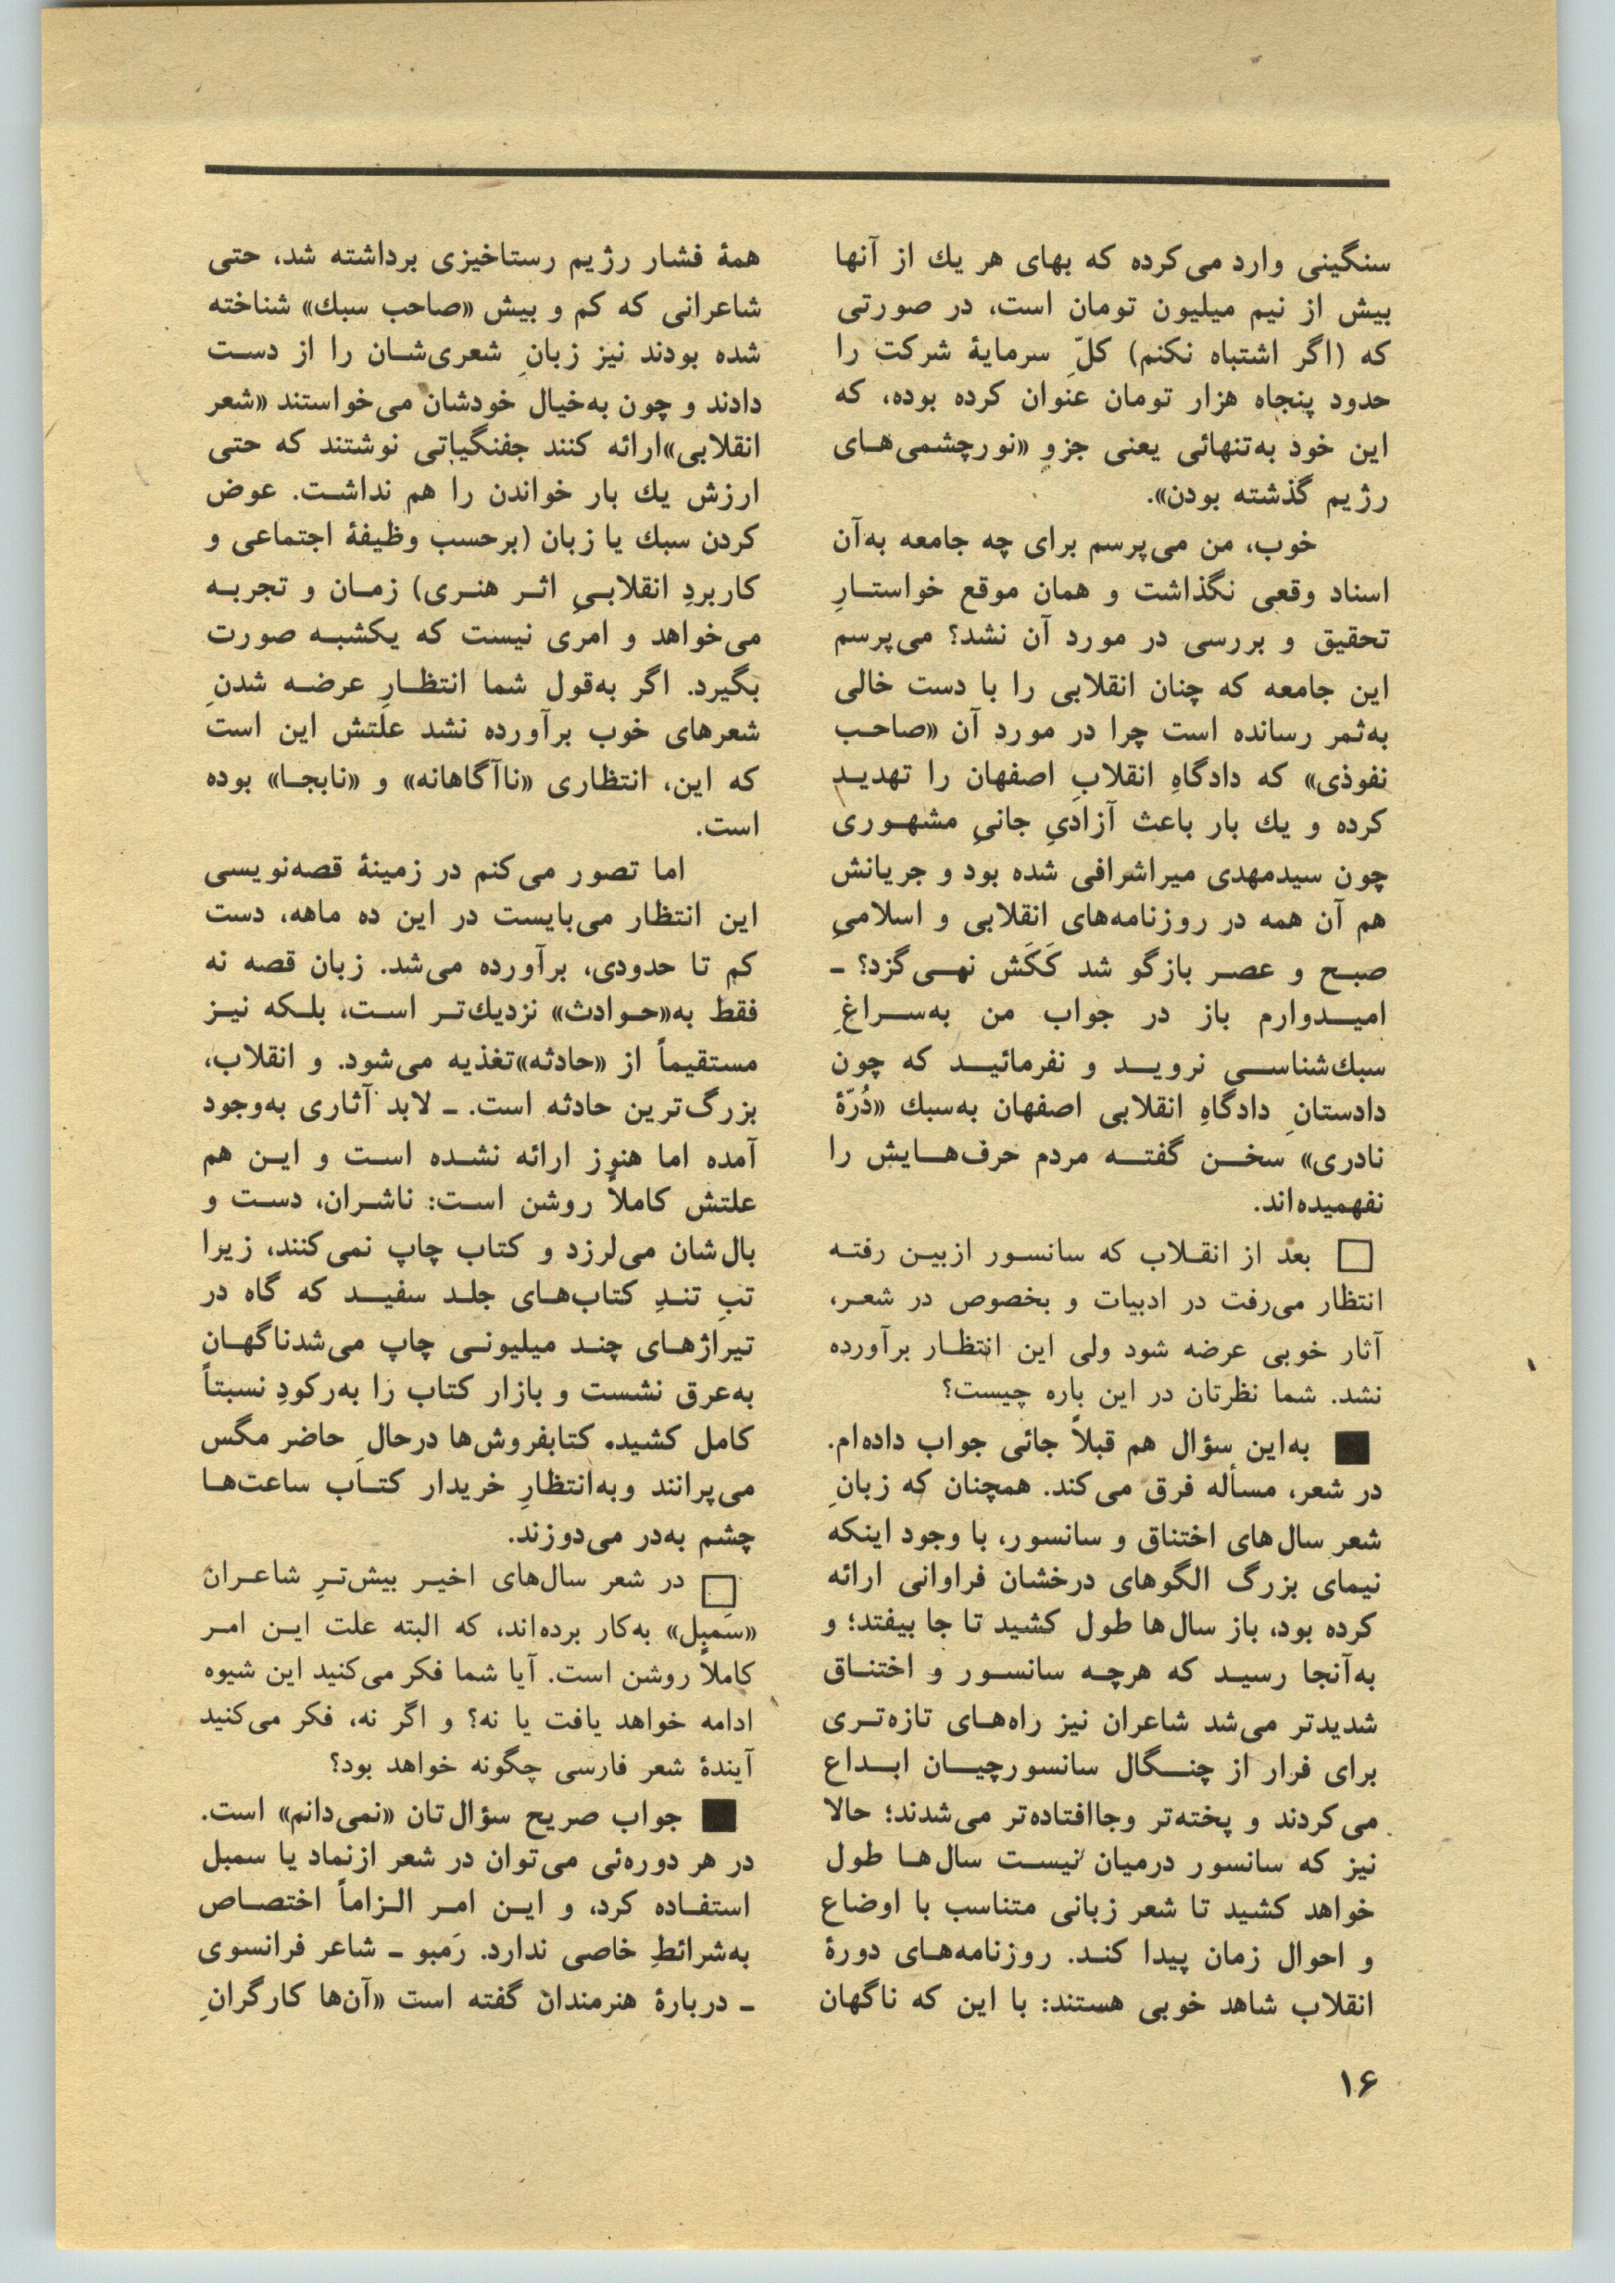 سنگینی وارد می‌کرده که بهای هر یك از آنها
بیش از نیم میلیون تومان است، در صورتی
که (اگر اشتباه نکنم) کلّ سرمایهٔ شرکت را
حدود پنجاه هزار تومان عنوان کرده بوده، که
این خود به‌تنهائی یعنی جزوِ «نورچشمی‌های
رژیم گذشته بودن».
خوب، من می‌پرسم برای چه جامعه به‌آن
اسناد وقعی نگذاشت و همان موقع خواستارِ
تحقیق و بررسی در مورد آن نشد؟ می‌پرسم
این جامعه که چنان انقلابی را با دست خالی
به‌ثمر رسانده است چرا در مورد آن «صاحب
نفوذی» که دادگاهِ انقلابِ اصفهان را تهدید
کرده و یك بار باعث آزادیِ جانیِ مشهوری
چون سیدمهدی میراشرافی شده بود و جریانش
هم آن همه در روزنامه‌های انقلابی و اسلامیِ
صبح و عصر بازگو شد کَکَش نمی‌گزد؟ ـ
امیدوارم باز در جواب من به‌سراغِ
سبك‌شناسی نروید و نفرمائید که چون
دادستانِ دادگاهِ انقلابی اصفهان به‌سبك «دُرّهٔ
نادری» سخن گفته مردم حرف‌هایش را
نفهمیده‌اند.
□ بعد از انقلاب که سانسور ازبین رفته
انتظار می‌رفت در ادبیات و بخصوص در شعر،
آثار خوبی عرضه شود ولی این انتظار برآورده
نشد. شما نظرتان در این باره چیست؟
■ به‌این سؤال هم قبلاً جائی جواب داده‌ام.
در شعر، مسأله فرق می‌کند. همچنان که زبانِ
شعر سال‌های اختناق و سانسور، با وجود اینکه
نیمای بزرگ الگوهای درخشان فراوانی ارائه
کرده بود، باز سال‌ها طول کشید تا جا بیفتد؛ و
به‌آنجا رسید که هرچه سانسور و اختناق
شدیدتر می‌شد شاعران نیز راه‌های تازه‌تری
برای فرار از چنگال سانسورچیان ابداع
می‌کردند و پخته‌تر وجاافتاده‌تر می‌شدند؛ حالا
نیز که سانسور درمیان نیست سال‌ها طول
خواهد کشید تا شعر زبانی متناسب با اوضاع
و احوال زمان پیدا کند. روزنامه‌های دورهٔ
انقلاب شاهد خوبی هستند: با این که ناگهان
همهٔ فشار رژیم رستاخیزی برداشته شد، حتی
شاعرانی که کم و بیش «صاحب سبك» شناخته
شده بودند نیز زبانِ شعری‌شان را از دست
دادند و چون به‌خیال خودشان می‌خواستند «شعر
انقلابی»ارائه کنند جفنگیاتی نوشتند که حتی
ارزش یك بار خواندن را هم نداشت. عوض
کردن سبك یا زبان (برحسب وظیفهٔ اجتماعی و
کاربردِ انقلابیِ اثر هنری) زمان و تجربه
می‌خواهد و امری نیست که یکشبه صورت
بگیرد. اگر به‌قول شما انتظارِ عرضه شدنِ
شعرهای خوب برآورده نشد علتش این است
که این، انتظاری «ناآگاهانه» و «نابجا» بوده
است.
اما تصور می‌کنم در زمینهٔ قصه‌نویسی
این انتظار می‌بایست در این ده ماهه، دست
کم تا حدودی، برآورده می‌شد. زبان قصه نه
فقط به«حوادث» نزدیك‌تر است، بلکه نیز
مستقیماً از «حادثه»تغذیه می‌شود. و انقلاب،
بزرگ‌ترین حادثه است. ـ لابد آثاری به‌وجود
آمده اما هنوز ارائه نشده است و این هم
علتش کاملاً روشن است: ناشران، دست و
بال‌شان می‌لرزد و کتاب چاپ نمی‌کنند، زیرا
تبِ تندِ کتاب‌های جلد سفید که گاه در
تیراژهای چند میلیونی چاپ می‌شدناگهان
به‌عرق نشست و بازار کتاب را به‌رکودِ نسبتاً
کامل کشید. کتابفروش‌ها درحالِ حاضر مگس
می‌پرانند وبه‌انتظارِ خریدار کتاب ساعت‌ها
چشم به‌در می‌دوزند.
□ در شعر سال‌های اخیر بیش‌ترِ شاعران
«سَمبِل» به‌کار برده‌اند، که البته علت این امر
کاملاً روشن است. آیا شما فکر می‌کنید این شیوه
ادامه خواهد یافت یا نه؟ و اگر نه، فکر می‌کنید
آیندهٔ شعر فارسی چگونه خواهد بود؟
■ جواب صریح سؤال‌تان «نمی‌دانم» است.
در هر دوره‌ئی می‌توان در شعر ازنماد یا سمبل
استفاده کرد، و این امر الزاماً اختصاص
به‌شرائطِ خاصی ندارد. رَمبو ـ شاعر فرانسوی
ـ دربارهٔ هنرمندان گفته است «آن‌ها کارگرانِ
۱۶